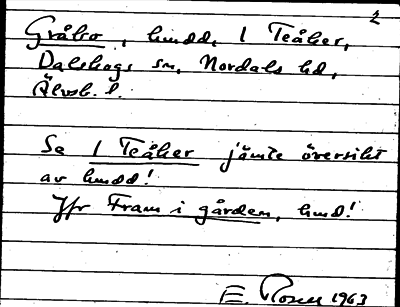 2
Gråbo, hmdd, 1 Teåker,
Dalskogs sn, Nordals hd,
Älvsb. l.
Se 1 Teåker jämte översikt
av hmdd!
Jfr Fram i gården, hmd!
E. Rosen 1963